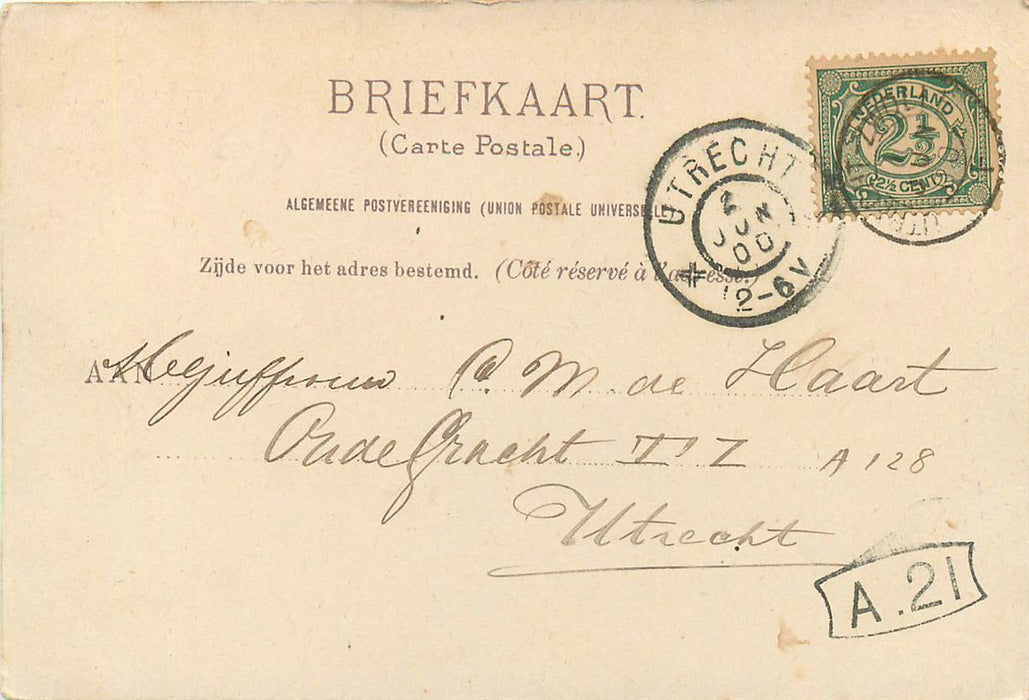 BRIEFKAART.
(Carte Postale.)
NEDERLAND
2½
2½ CENT
UTRECHT
2 JUN 00
12-6V
ALGEMEENE POSTVEREENIGING (UNION POSTALE UNIVERSELLE
Zijde voor het adres bestemd. (Côté réservé à l'adresse.)
AAN Mejuffrouw C. M. de Haart
Oude Gracht TZ A 128
Utrecht
A.21